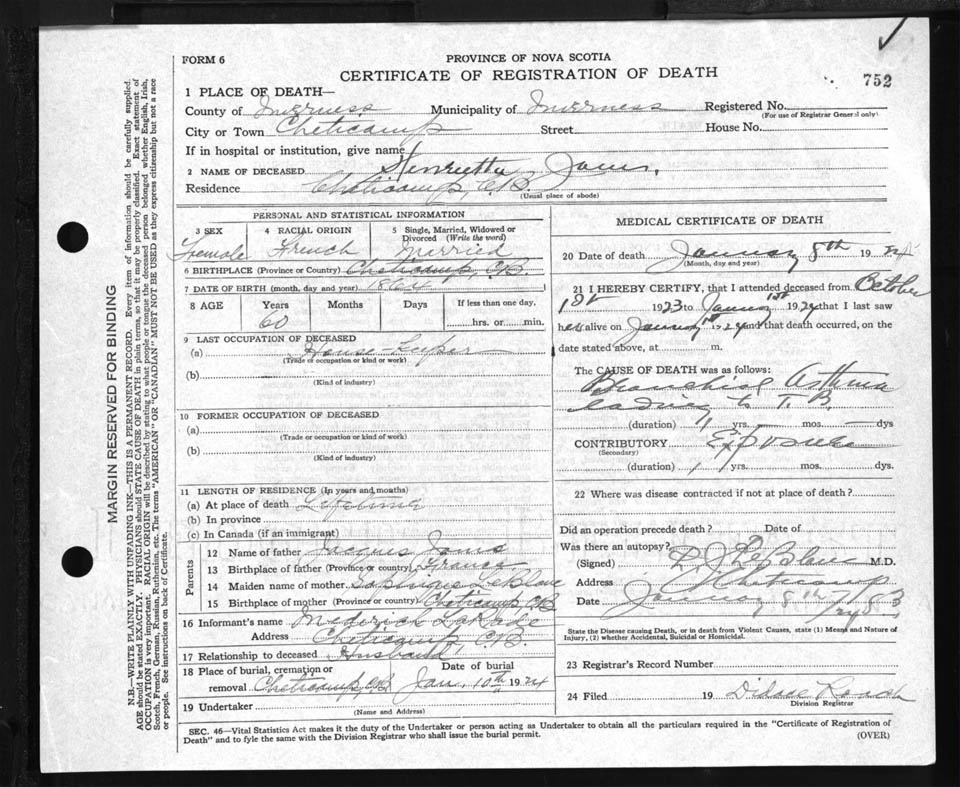 FORM 6
PROVINCE OF NOVA SCOTIA
CERTIFICATE OF REGISTRATION OF DEATH
752
1 PLACE OF DEATH—
County of Inverness Municipality of Inverness Registered No.
(For use of Registrar General only)
City or Town Cheticamp Street House No.
If in hospital or institution, give name
2 NAME OF DECEASED Henrietta
Residence Cheticamp, C.B.
(Usual place of abode)
PERSONAL AND STATISTICAL INFORMATION
3 SEX 4 RACIAL ORIGIN 5 Single, Married, Widowed or Divorced (Write the word)
Female French Married
6 BIRTHPLACE (Province or Country) Cheticamp, C.B.
7 DATE OF BIRTH (month, day and year) 1864
8 AGE Years Months Days If less than one day.
60 hrs. or min.
9 LAST OCCUPATION OF DECEASED
(a) House-Keeper
(Trade or occupation or kind of work)
(b)
(Kind of industry)
10 FORMER OCCUPATION OF DECEASED
(a)
(Trade or occupation or kind of work)
(b)
(Kind of industry)
11 LENGTH OF RESIDENCE (In years and months)
(a) At place of death Lifetime
(b) In province
(c) In Canada (if an immigrant)
Parents
12 Name of father Jacques
13 Birthplace of father (Province or country) France
14 Maiden name of mother LeBlanc
15 Birthplace of mother (Province or country) Cheticamp, C.B.
16 Informant's name Mederick
Address Cheticamp C.B.
17 Relationship to deceased Husband
18 Place of burial, cremation or removal Cheticamp C.B. Date of burial Jan. 10th 1924
19 Undertaker
(Name and Address)
MEDICAL CERTIFICATE OF DEATH
20 Date of death January 8th 1924
(Month, day and year)
21 I HEREBY CERTIFY, that I attended deceased from October
1st 1923 to January 1st 1924 that I last saw
her alive on January 1st 1924 and that death occurred, on the
date stated above, at m.
The CAUSE OF DEATH was as follows:
Bronchial Asthma
leading to T.B.
(duration) 1 yrs. mos. dys
CONTRIBUTORY Exposure
(Secondary)
(duration) 1 yrs. mos. dys.
22 Where was disease contracted if not at place of death?
Did an operation precede death? Date of
Was there an autopsy?
(Signed) LeBlanc M.D.
Address Cheticamp
Date January 8th
State the Disease causing Death, or in death from Violent Causes, state (1) Means and Nature of
Injury, (2) whether Accidental, Suicidal or Homicidal.
23 Registrar's Record Number
24 Filed 19
Division Registrar
SEC. 46—Vital Statistics Act makes it the duty of the Undertaker or person acting as Undertaker to obtain all the particulars required in the "Certificate of Registration of
Death" and to fyle the same with the Division Registrar who shall issue the burial permit.
(OVER)
MARGIN RESERVED FOR BINDING
N.B.—WRITE PLAINLY WITH UNFADING INK—THIS IS A PERMANENT RECORD. Every item of information should be carefully supplied.
AGE should be stated EXACTLY. PHYSICIANS should STATE CAUSE OF DEATH in plain terms, so that it may be properly classified. Exact statement of
OCCUPATION is very important. RACIAL ORIGIN will be described by stating to what people or tongue the deceased person belonged whether English, Irish,
Scotch, French, German, Russian, Ruthenian, etc. The terms "AMERICAN" OR "CANADIAN" MUST NOT BE USED as they express citizenship but not a race
or people. See instructions on back of Certificate.